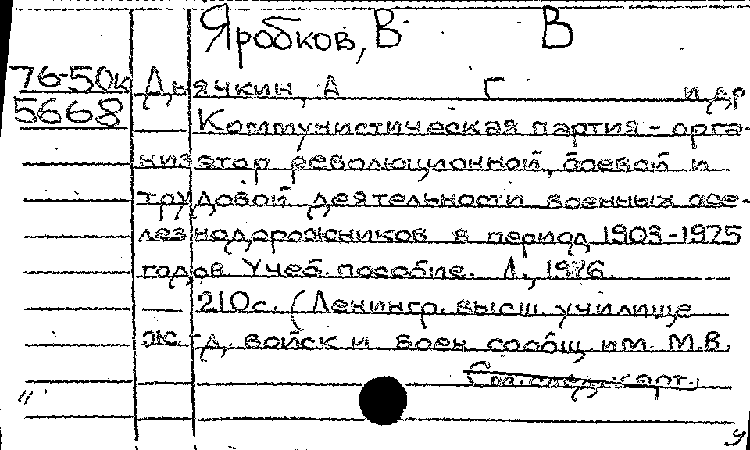 Яробков, В В
76-50к Дьячкин, А Г и др
5668 Коммунистическая партия - орга-
низатор революционной, боевой и
трудовой деятельности военных асе-
лезнодорожников в период 1903-1925
годов. Учеб. пособие. Л., 1976.
210с. (Ленингр. высш. училище
ж.-д. войск и воен. сообщ. им. М.В.
См. след. карт.